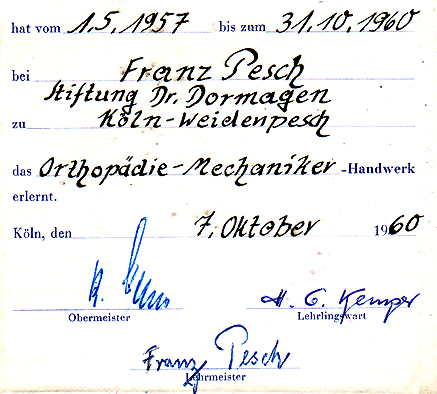 hat vom 1.5.1957 bis zum 31.10.1960
bei Franz Pesch
Stiftung Dr. Dormagen
zu Köln-Weidenpesch
das Orthopädie-Mechaniker -Handwerk
erlernt.
Köln, den 7. Oktober 1960
H. G. Kemper
Obermeister Lehrlingswart
Franz Pesch
Lehrmeister